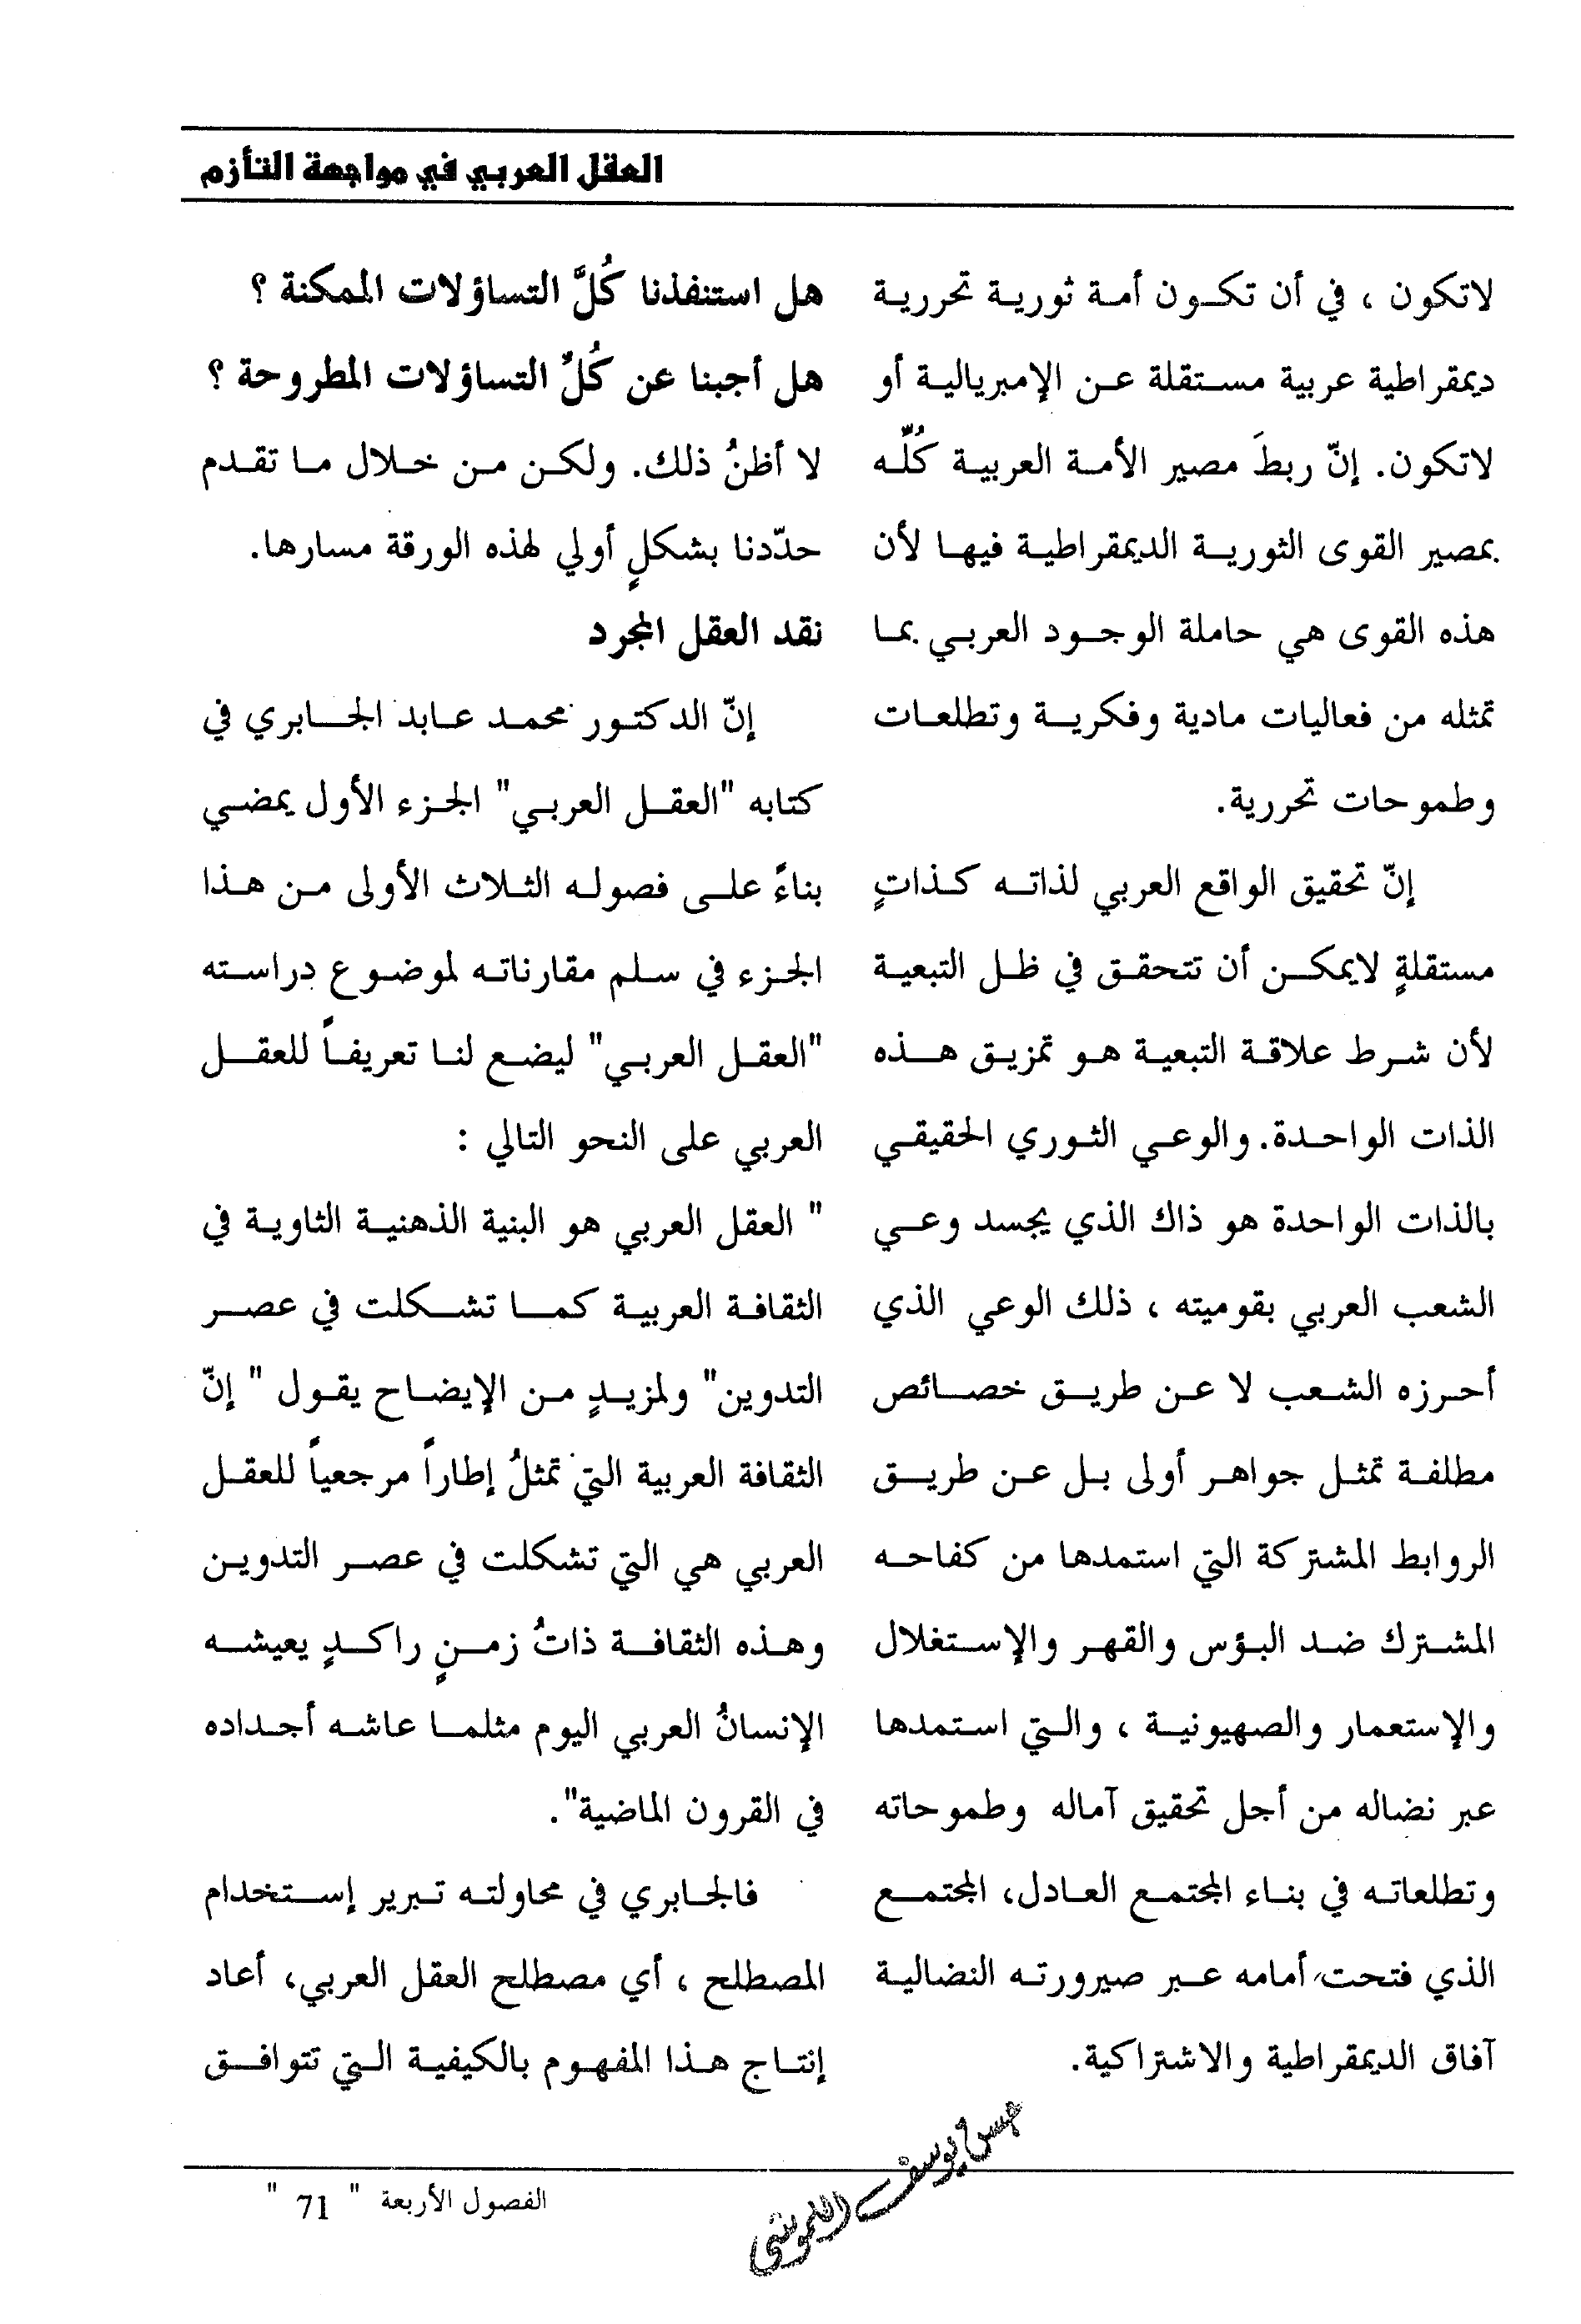 العقل العربي في مواجهة التأزم
لاتكون ، في أن تكون أمة ثورية تحررية
ديمقراطية عربية مستقلة عن الإمبريالية أو
لاتكون. إنّ ربطَ مصير الأمة العربية كُلّه
بمصير القوى الثورية الديمقراطية فيها لأن
هذه القوى هي حاملة الوجود العربي بما
تمثله من فعاليات مادية وفكرية وتطلعات
وطموحات تحررية.
إنّ تحقيق الواقع العربي لذاته كذاتٍ
مستقلةٍ لايمكن أن تتحقق في ظل التبعية
لأن شرط علاقة التبعية هو تمزيق هذه
الذات الواحدة. والوعي الثوري الحقيقي
بالذات الواحدة هو ذاك الذي يجسد وعي
الشعب العربي بقوميته ، ذلك الوعي الذي
أحرزه الشعب لا عن طريق خصائص
مطلفة تمثل جواهر أولى بل عن طريق
الروابط المشتركة التي استمدها من كفاحه
المشترك ضد البؤس والقهر والإستغلال
والإستعمار والصهيونية ، والتي استمدها
عبر نضاله من أجل تحقيق آماله وطموحاته
وتطلعاته في بناء المجتمع العادل، المجتمع
الذي فتحت أمامه عبر صيرورته النضالية
آفاق الديمقراطية والاشتراكية.
هل استنفذنا كُلَّ التساؤلات الممكنة ؟
هل أجبنا عن كُلِّ التساؤلات المطروحة ؟
لا أظنُ ذلك. ولكن من خلال ما تقدم
حدّدنا بشكلٍ أولي لهذه الورقة مسارها.
نقد العقل المجرد
إنّ الدكتور محمد عابد الجابري في
كتابه "العقل العربي" الجزء الأول يمضي
بناءً على فصوله الثلاث الأولى من هذا
الجزء في سلم مقارناته لموضوع دراسته
"العقل العربي" ليضع لنا تعريفاً للعقل
العربي على النحو التالي :
" العقل العربي هو البنية الذهنية الثاوية في
الثقافة العربية كما تشكلت في عصر
التدوين" ولمزيدٍ من الإيضاح يقول " إنّ
الثقافة العربية التي تمثلُ إطاراً مرجعياً للعقل
العربي هي التي تشكلت في عصر التدوين
وهذه الثقافة ذاتُ زمنٍ راكدٍ يعيشه
الإنسانُ العربي اليوم مثلما عاشه أجداده
في القرون الماضية".
فالجابري في محاولته تبرير إستخدام
المصطلح ، أي مصطلح العقل العربي، أعاد
إنتاج هذا المفهوم بالكيفية التي تتوافق
الفصول الأربعة " 71 "